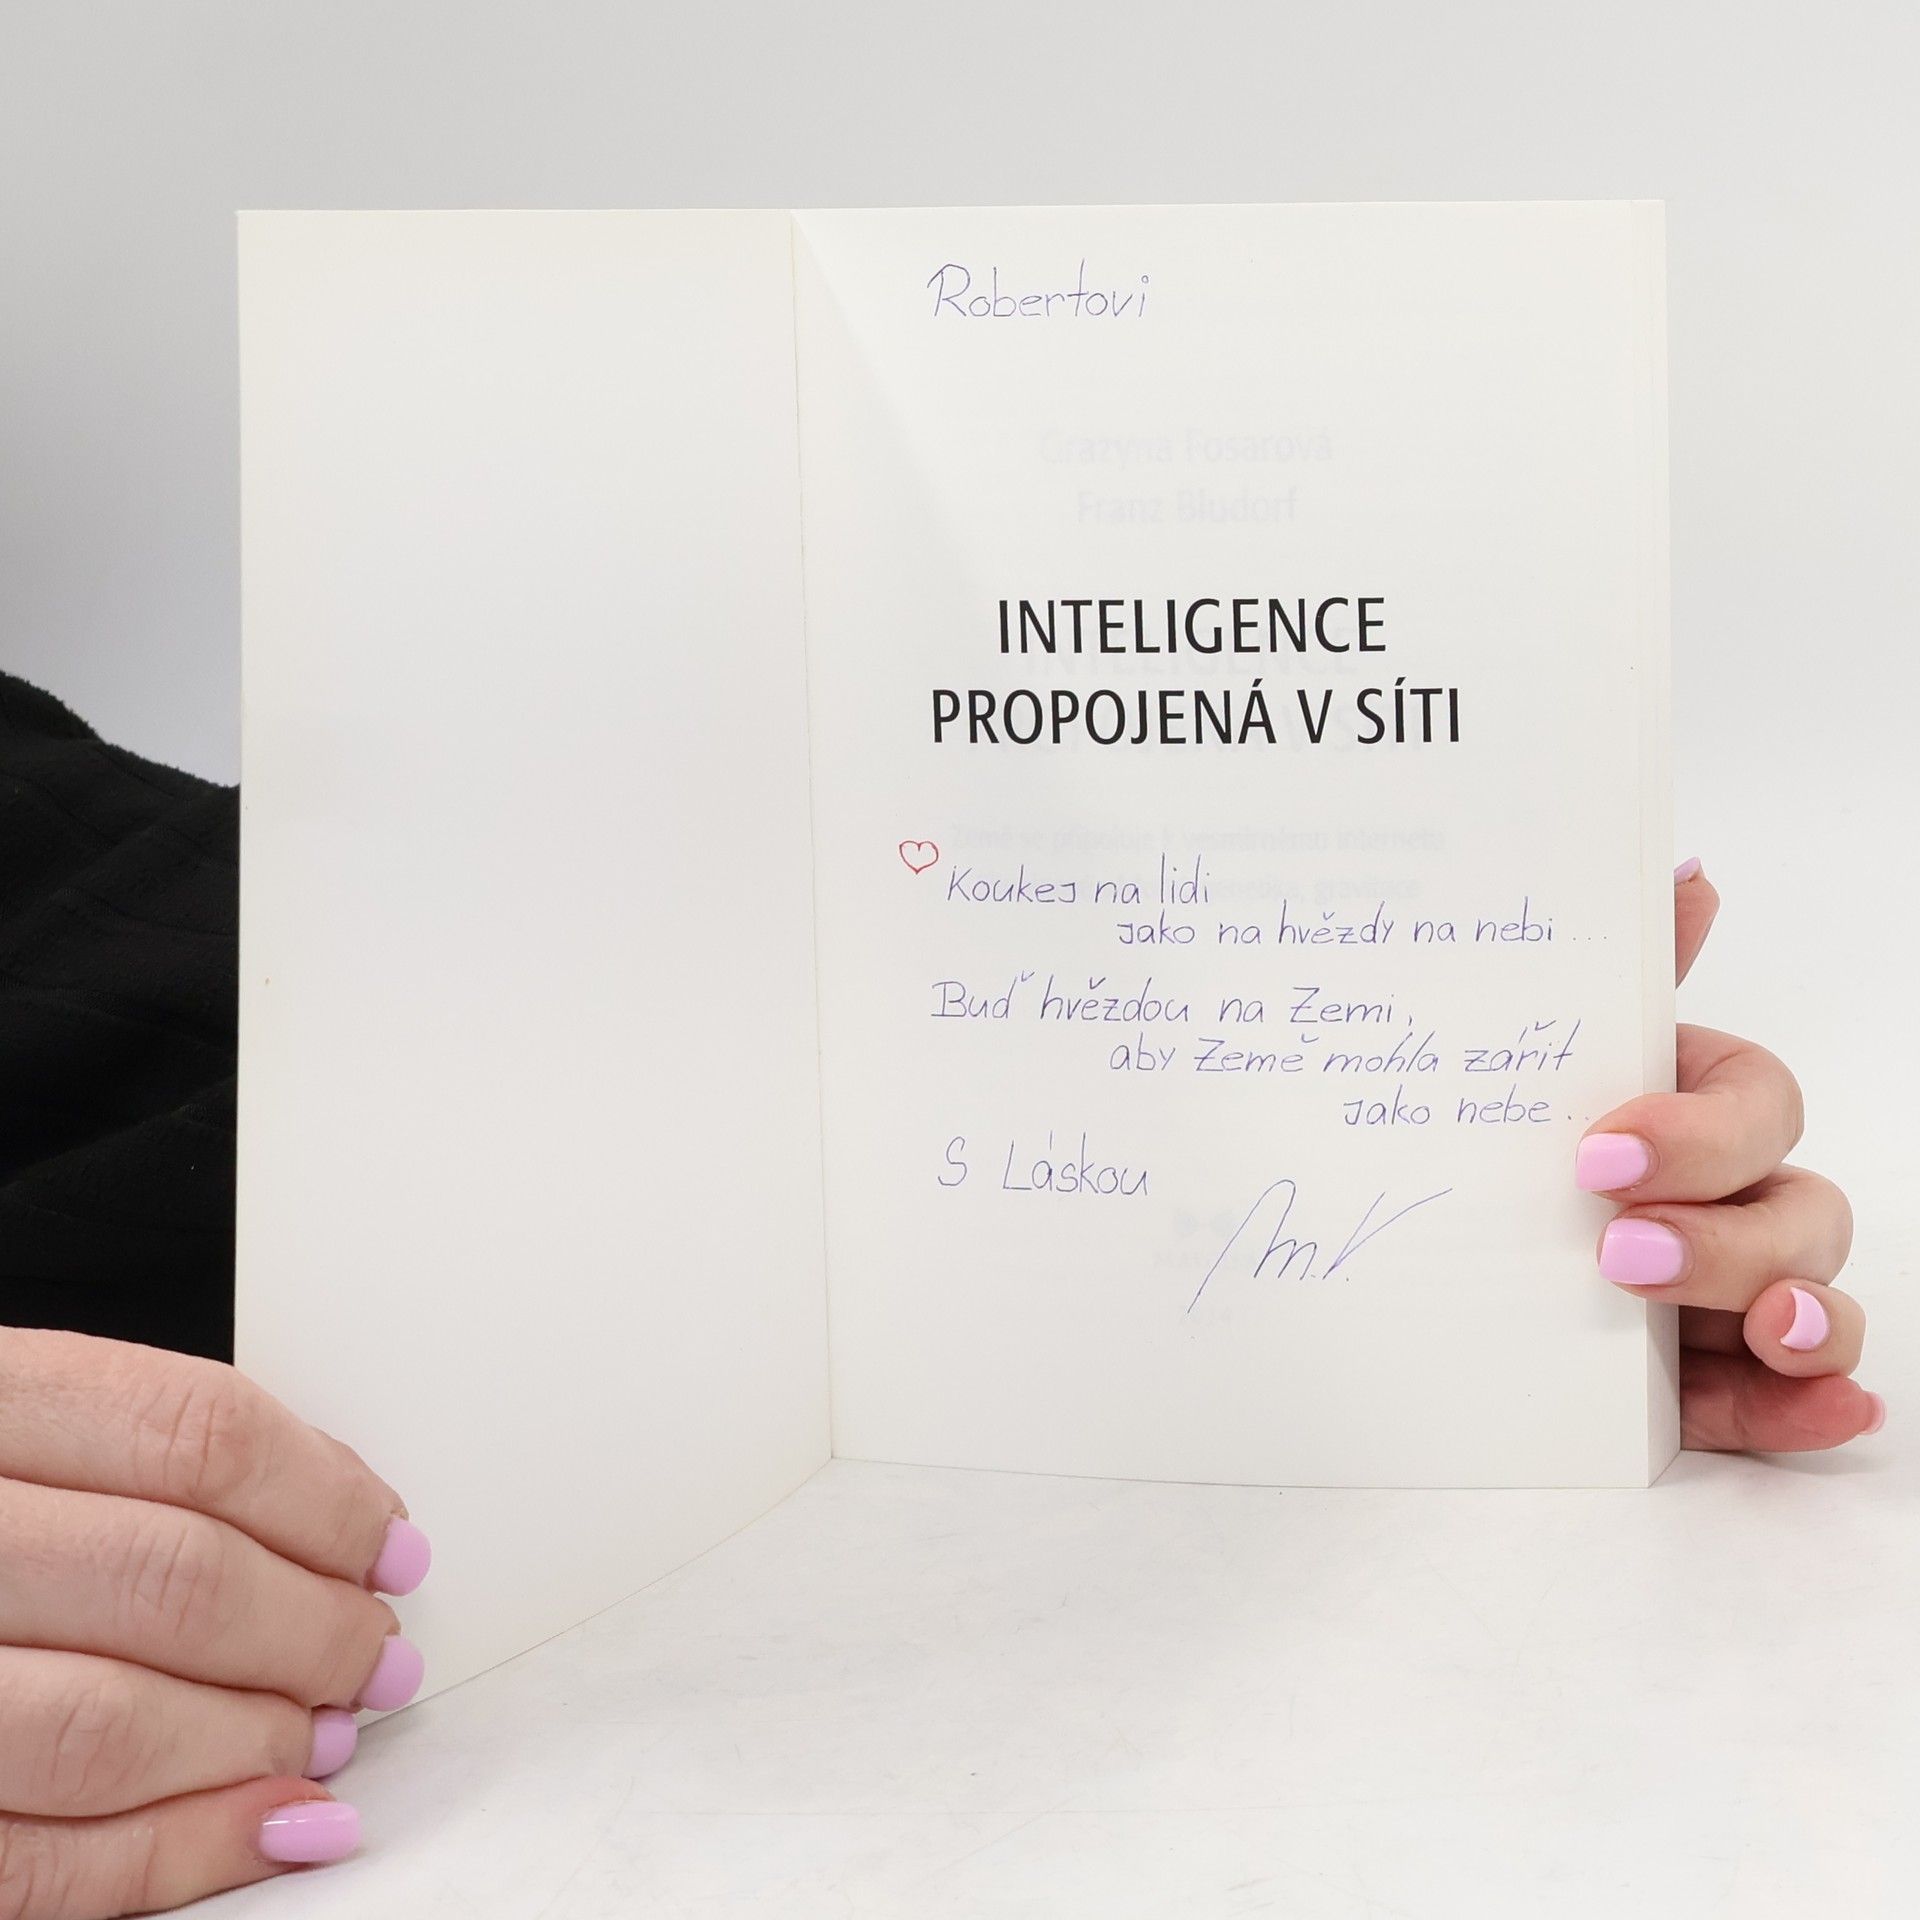 Robertovi
Grazyna Fosarová
Franz Bludorf
INTELIGENCE
PROPOJENÁ V SÍTI
Koukej na lidi
jako na hvězdy na nebi...
Buď hvězdou na Zemi,
aby Země mohla zářit
jako nebe..
S Láskou